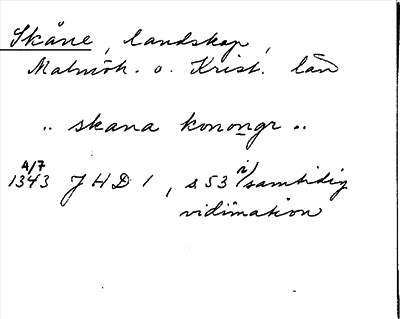 Skåne, landskap,
Malmöh. o. Krist. län
.. skana konongr ..
4/7
1343 JHD 1, s. 53 i/ samtidig
vidimation